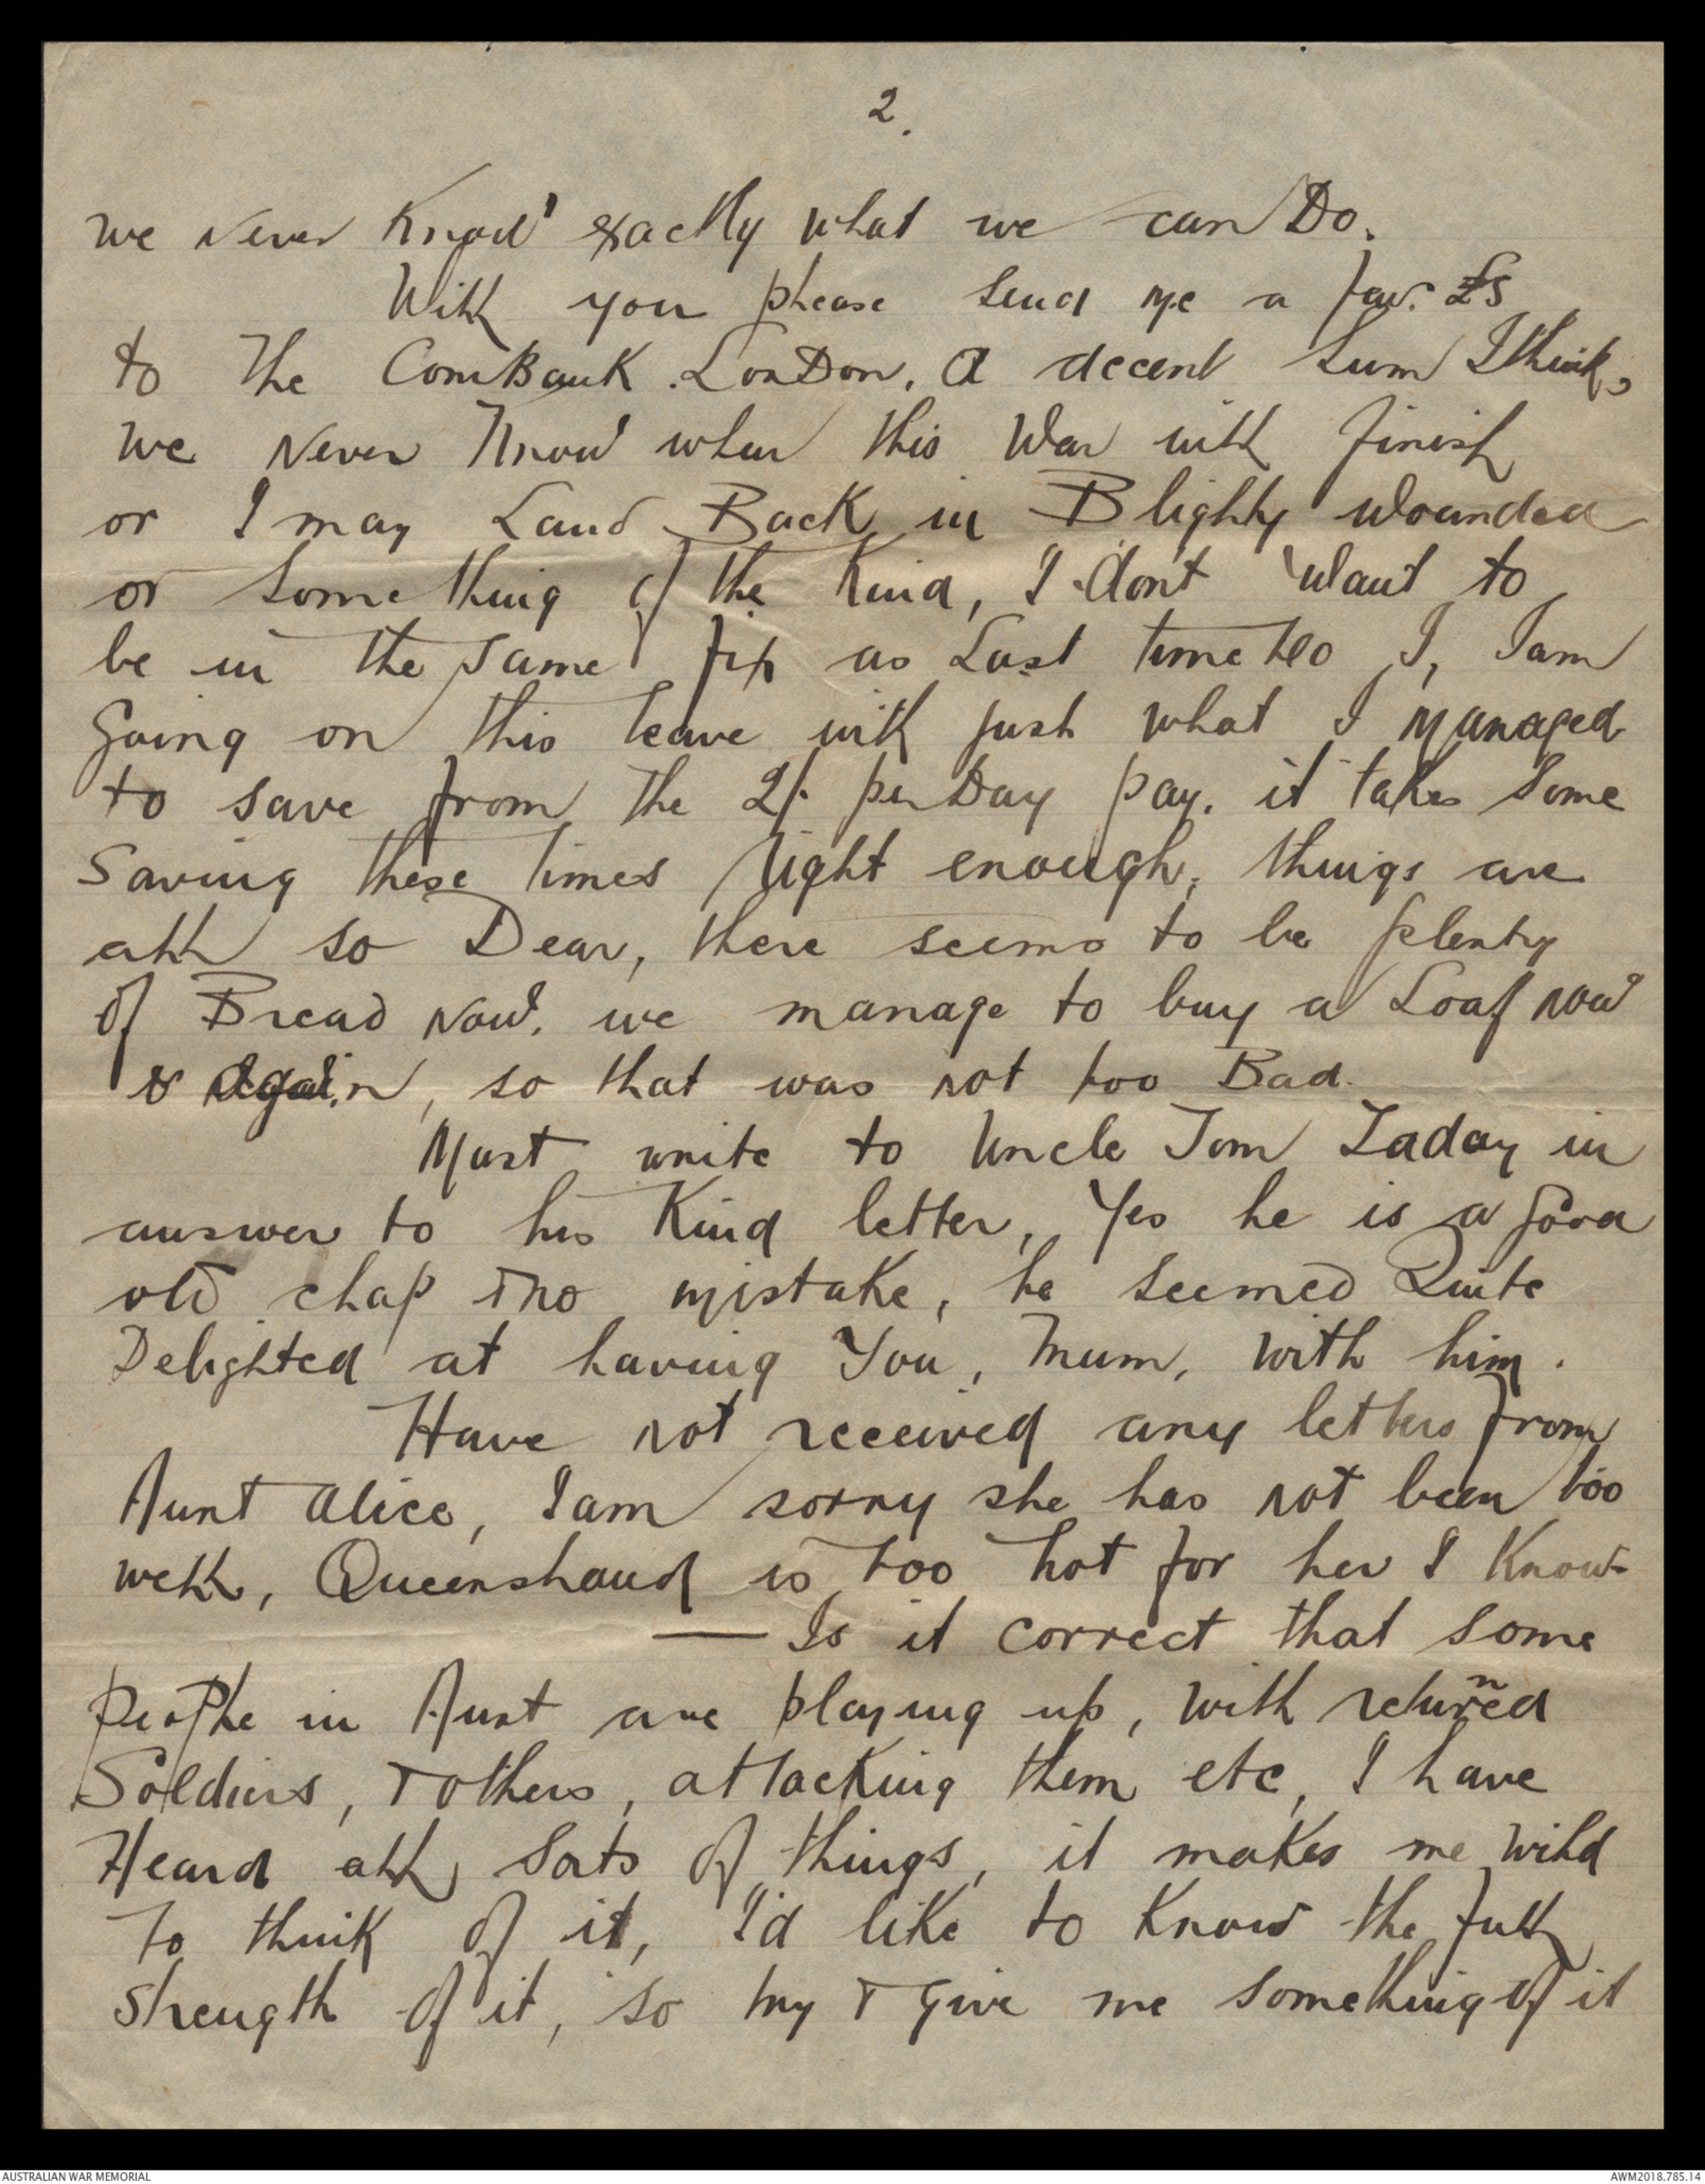 2.
we never Know exactly what we can Do.
Will you please send me a few £s
to the ComBank. London, a decent sum I think,
we never Know when this War will finish
or I may Land Back in Blighty wounded
or something of the Kind, I don't want to
be in the same fix as Last time
I am
going on this leave with just what I managed
to save from the 2/- per Day pay. it takes some
saving these times right enough, things are
all so Dear, there seems to be plenty
of Bread now. we manage to buy a Loaf now
& again, so that was not too Bad.
Must write to Uncle Tom Taday in
answer to his Kind letter, Yes he is a good
old chap & no mistake, he seemed Quite
Delighted at having You, Mum, with him.
Have not received any letters from
Aunt Alice, I am sorry she has not been too
well, Queensland is too hot for her I Know-
— Is it correct that some
People in Aust are playing up, with returned
Soldiers, & others, attacking them etc, I have
Heard all sorts of things, it makes me wild
to think of it, I'd like to Know the full
strength of it, so try & give me something of it
AUSTRALIAN WAR MEMORIAL
AWM2018.785.14